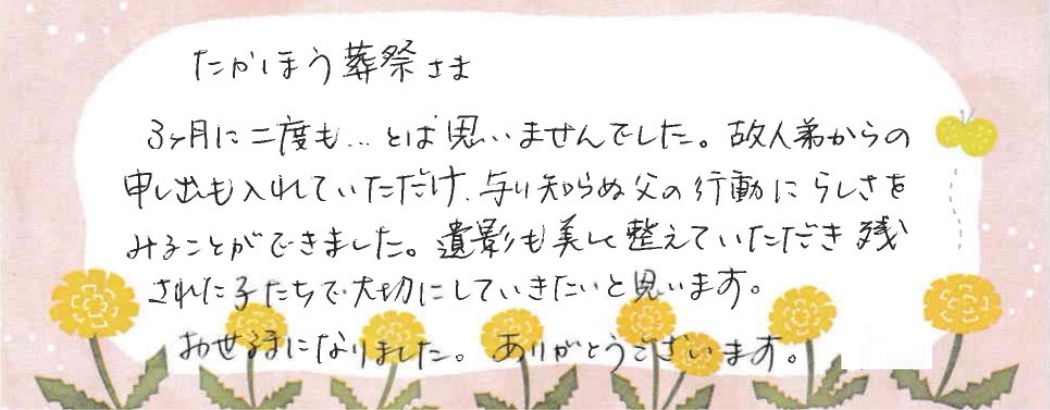 たかほう葬祭さま
3ヶ月に二度も…とは思いませんでした。故人弟からの
申し出も入れていただけ、与り知らぬ父の行動にらしさを
みることができました。遺影も美しく整えていただき残
された子たちで大切にしていきたいと思います。
お世話になりました。ありがとうございます。